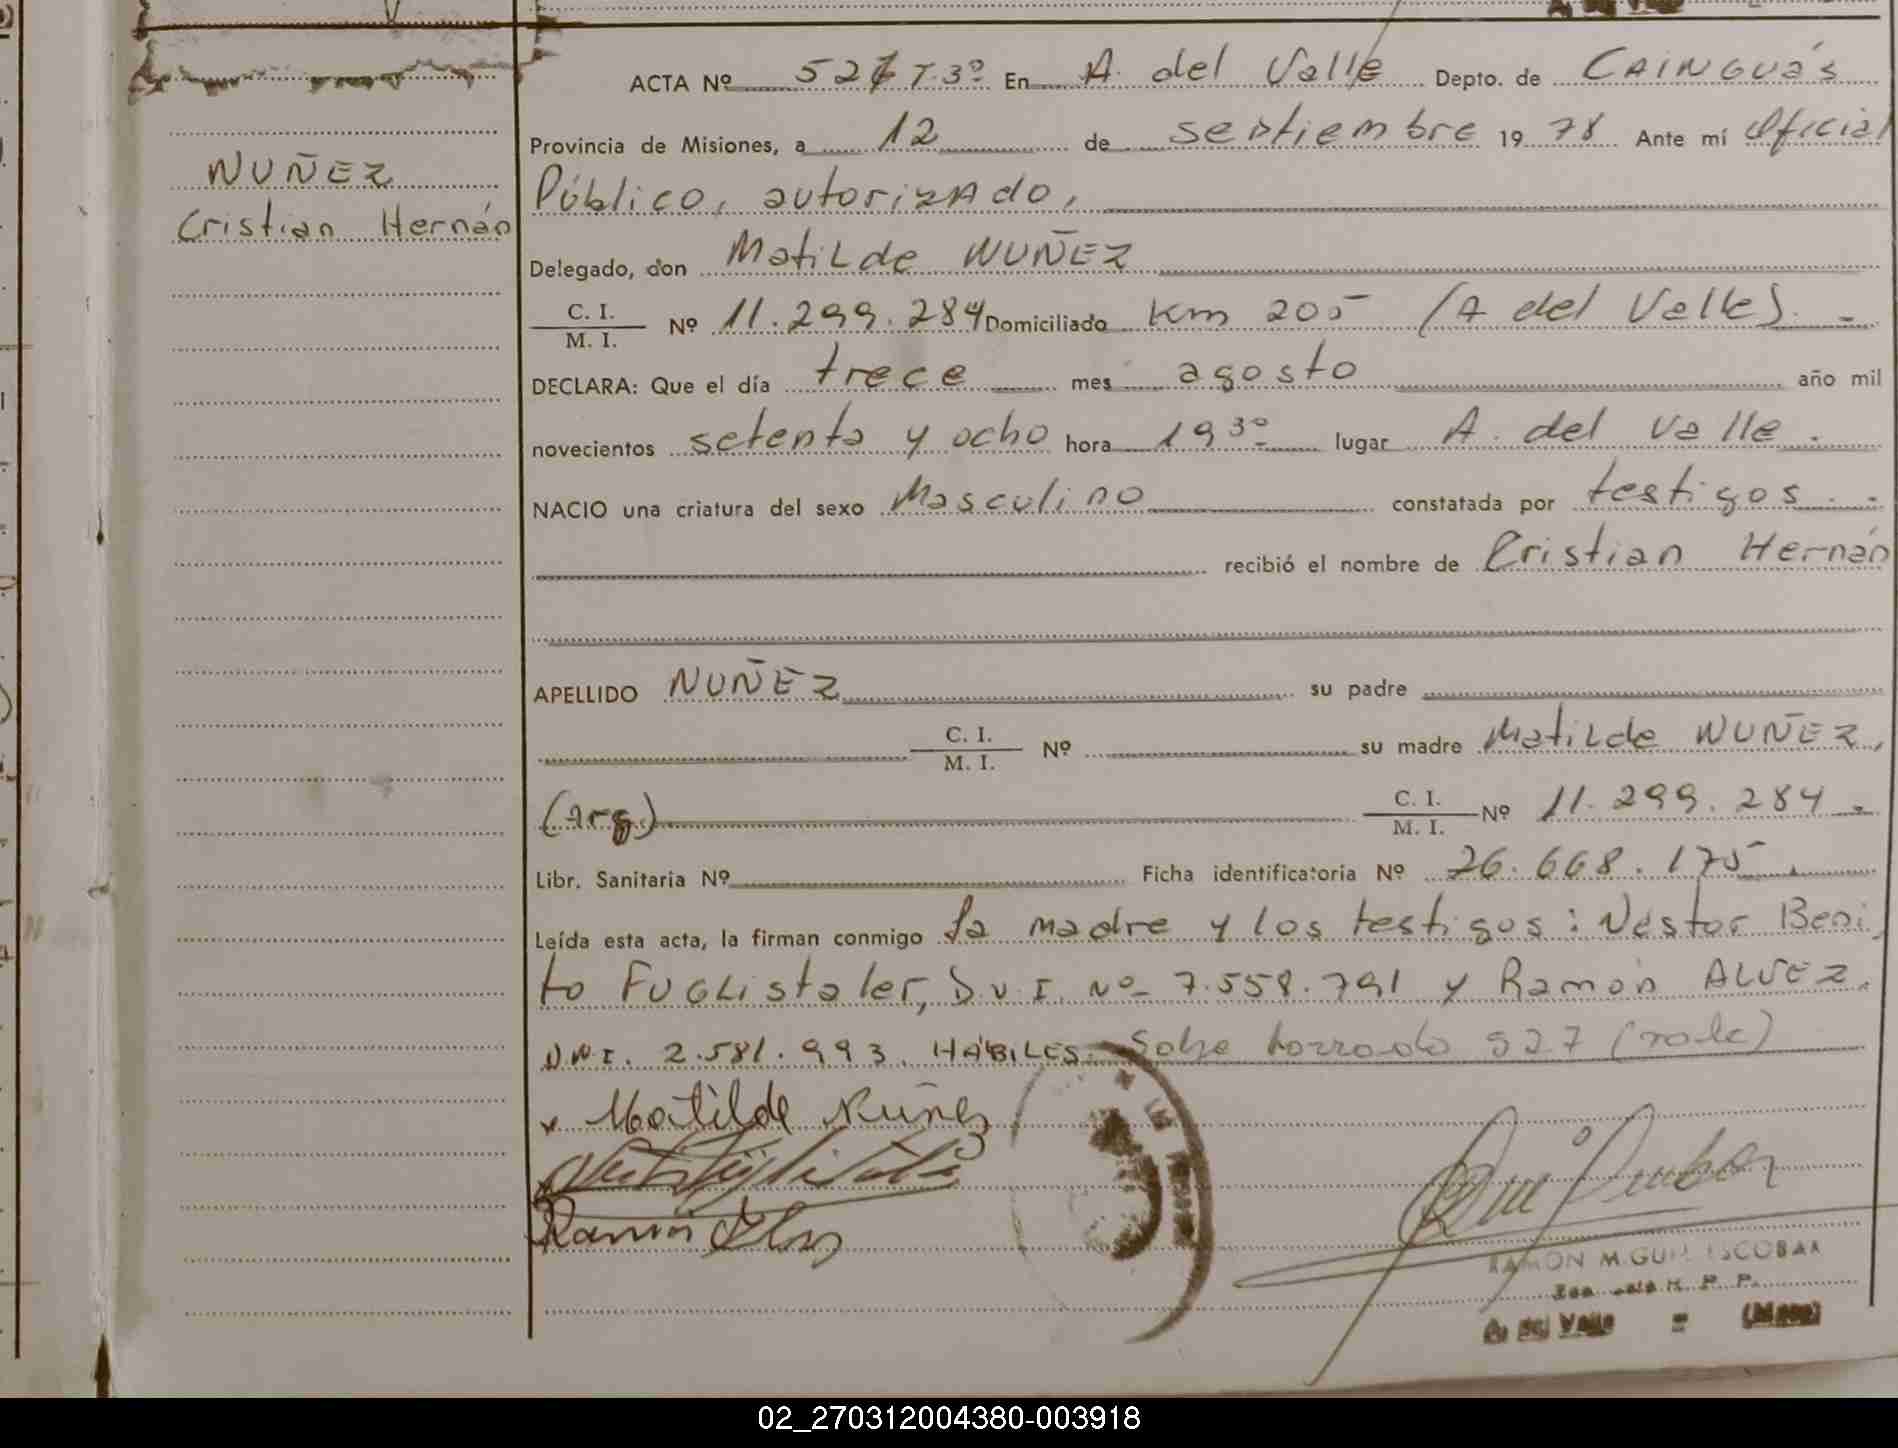 ACTA Nº 527 T.3º En A. del Valle Depto. de CAINGUÁS
Provincia de Misiones, a 12 de septiembre 1978 Ante mí Oficial
Público, autorizado,
NUÑEZ
Cristian Hernán
Delegado, don Matilde NUÑEZ
C. I.
M. I.
Nº 11.299.284 Domiciliado Km 205 (A del Valle). -
DECLARA: Que el día trece mes agosto año mil
novecientos setenta y ocho hora 19 30 lugar A. del Valle.
NACIO una criatura del sexo Masculino constatada por testigos. -
recibió el nombre de Cristian Hernán
APELLIDO NUÑEZ su padre
C. I.
M. I.
Nº su madre Matilde NUÑEZ,
(arg.) C. I.
M. I.
Nº 11.299.284 -
Libr. Sanitaria Nº Ficha identificatoria Nº 26.668.175.
Leída esta acta, la firman conmigo la madre y los testigos: Néstor Beni
to FUGListaler, D.N.I. Nº 7.558.791 y Ramón ALVEZ,
D.N.I. 2.581.993. HÁBILES. Sobre borrado 527 (vale)
Matilde Nuñez
Ramón
RAMON MIGUEL ESCOBAR
R. P. P.
A. del Valle = (Mnes)
02_270312004380-003918